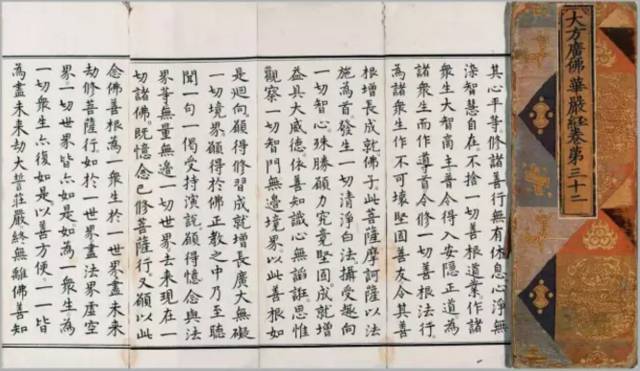 大方廣佛華嚴經卷第三十二
其心平等修諸善行無有休息心淨無
染智慧自在。不捨一切善根道業。作諸
眾生大智商主普令得入安隱正道。為
諸眾生而作導首令修一切善根法行。
為諸眾生作不可壞堅固善友令其善
根增長成就佛子。此菩薩摩訶薩以法
施為首。發生一切清淨白法。攝受趣向
一切智心。殊勝願力究竟堅固成就增
益具大威德。依善知識心無諂誑思惟
觀察一切智門無邊境界。以此善根如
是迴向。願得修習成就增長廣大無礙
一切境界。願得於佛正教之中乃至聽
聞一句一偈受持演說。願得憶念與法
界等無量無邊一切世界去來現在一
切諸佛。既憶念已修菩薩行。又願以此
念佛善根為一眾生於一世界盡未來
劫修菩薩行。如於一世界盡法界虛空
界一切世界皆亦如是。如為一眾生為
一切眾生亦復如是。以善方便。一一皆
為盡未來劫大誓莊嚴終無離佛善知